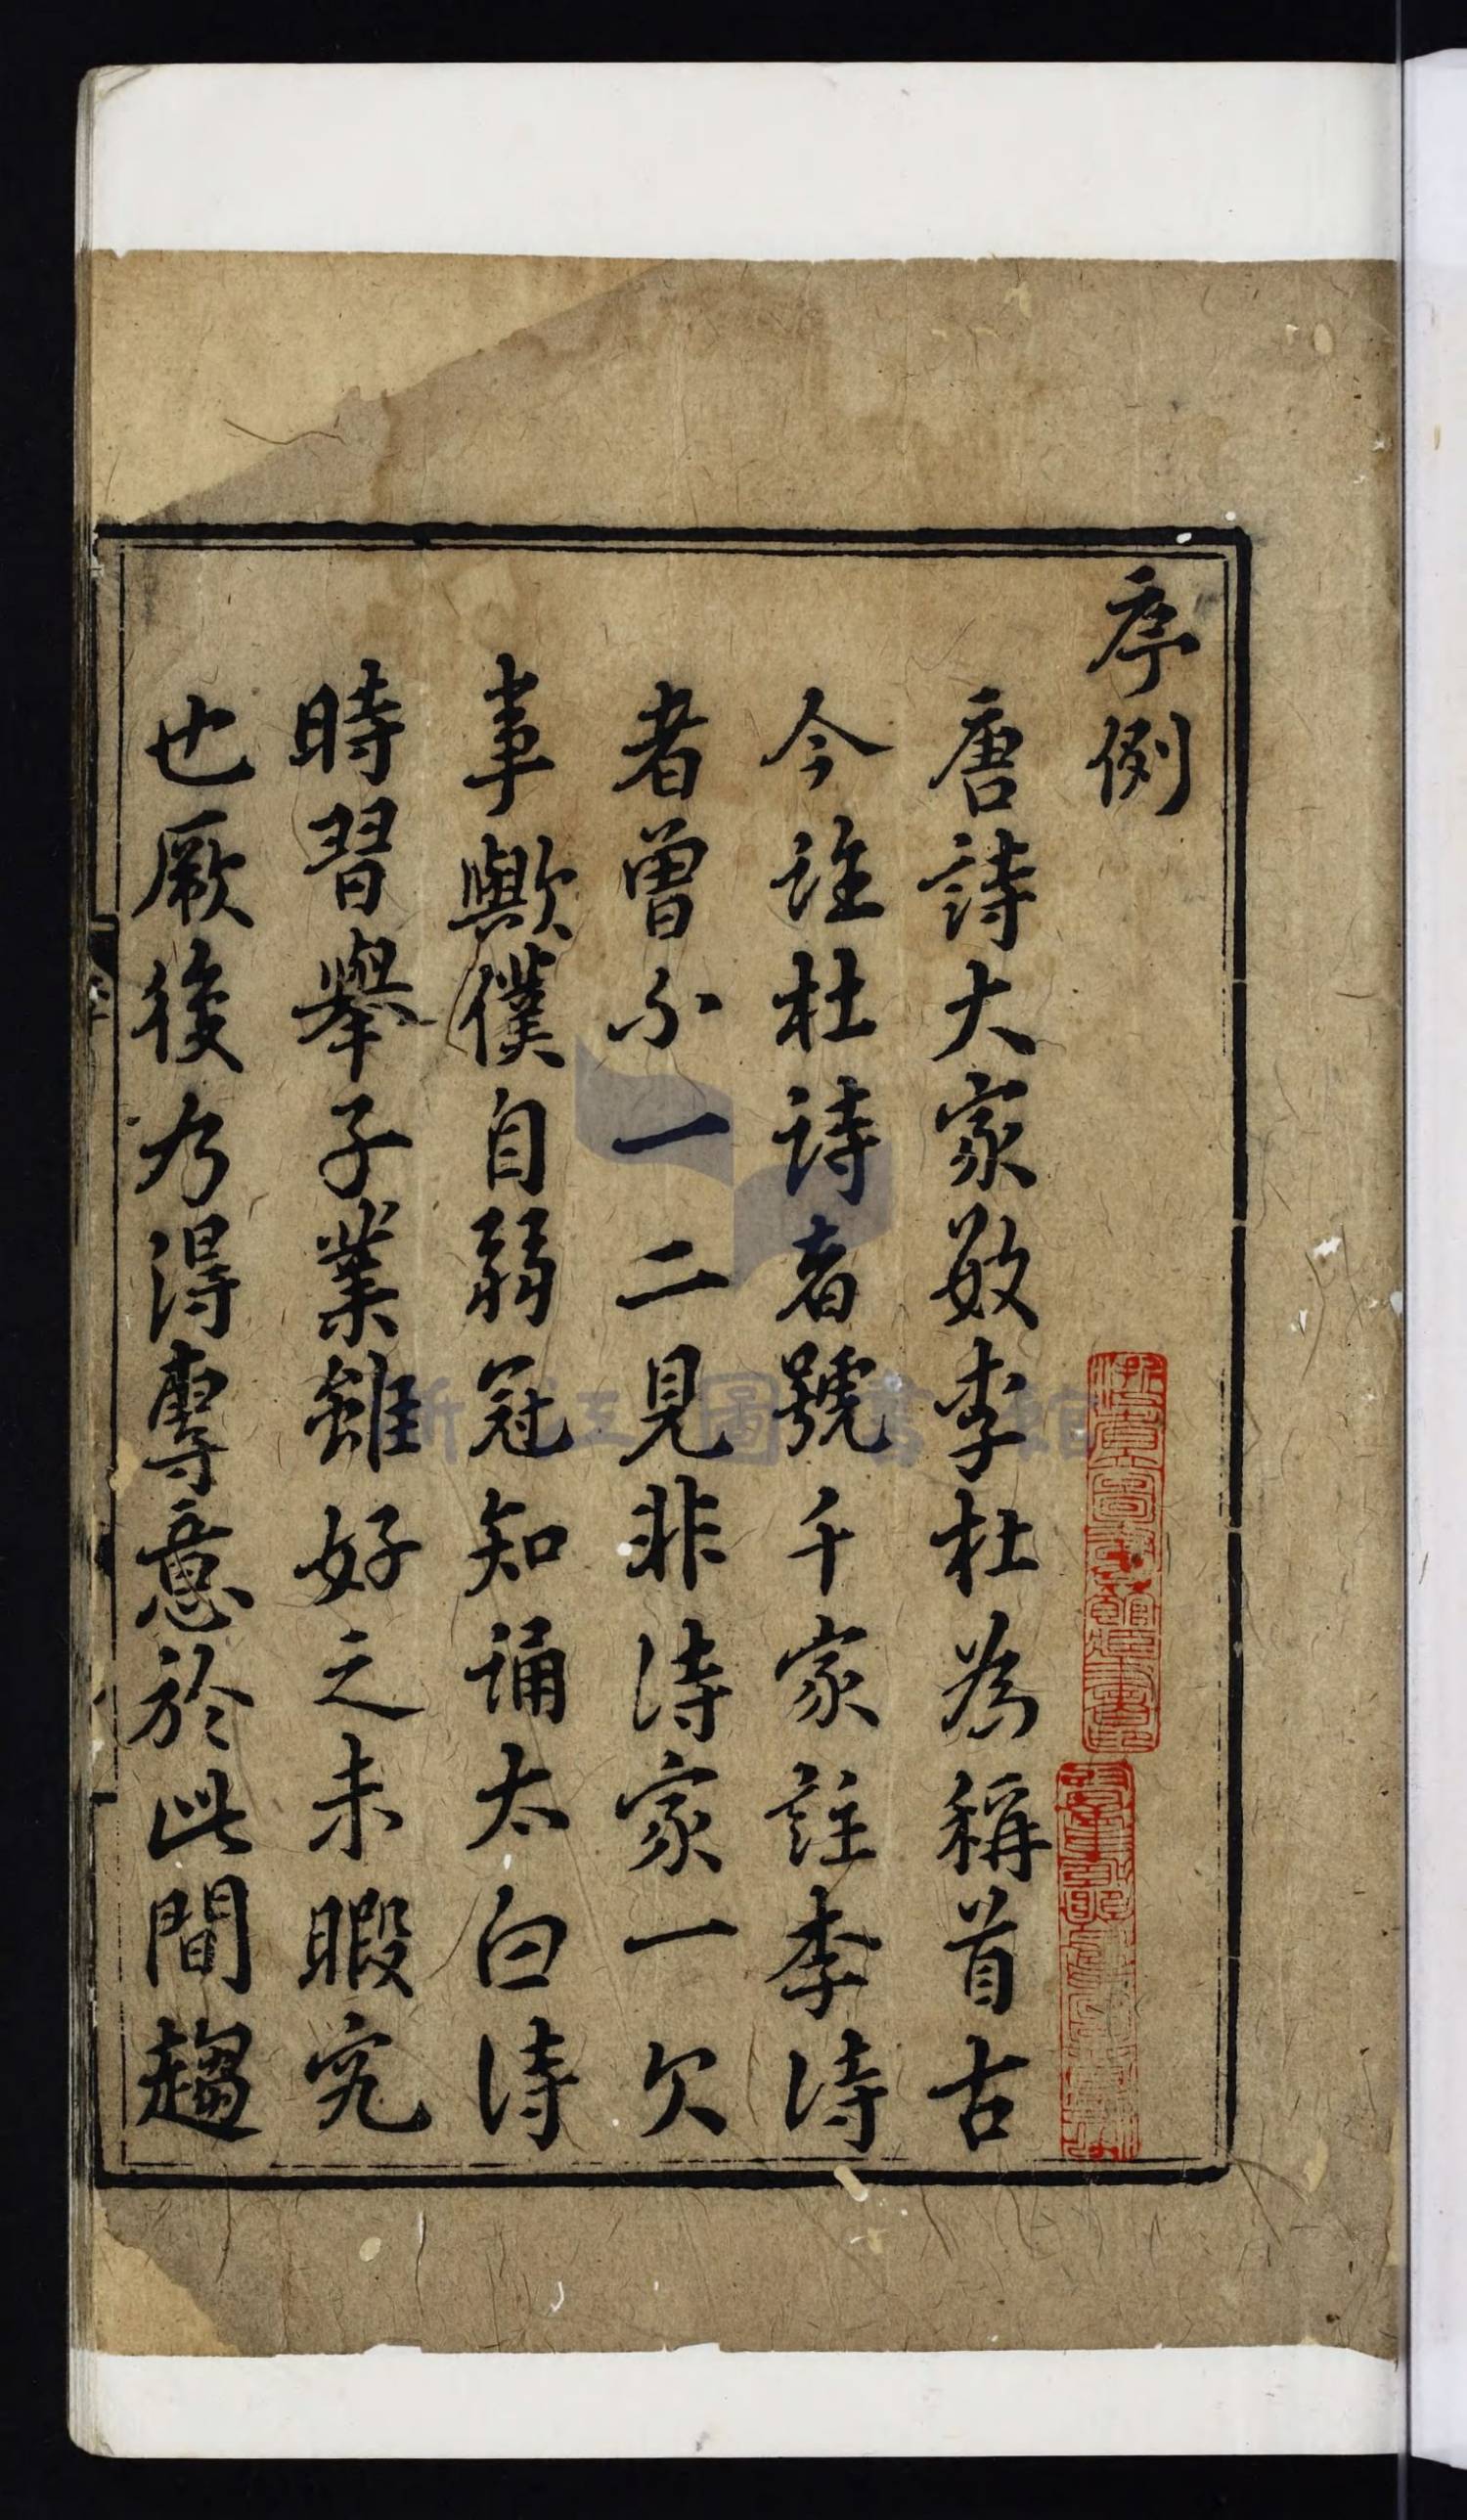 序例
唐詩大家數李杜為稱首古
今註杜詩者號千家註李詩
者曾不一二見非詩家一欠
事歟僕自弱冠知誦太白詩
時習舉子業雖好之未暇究
也厥後乃得專意於此間趨
浙江圖書館